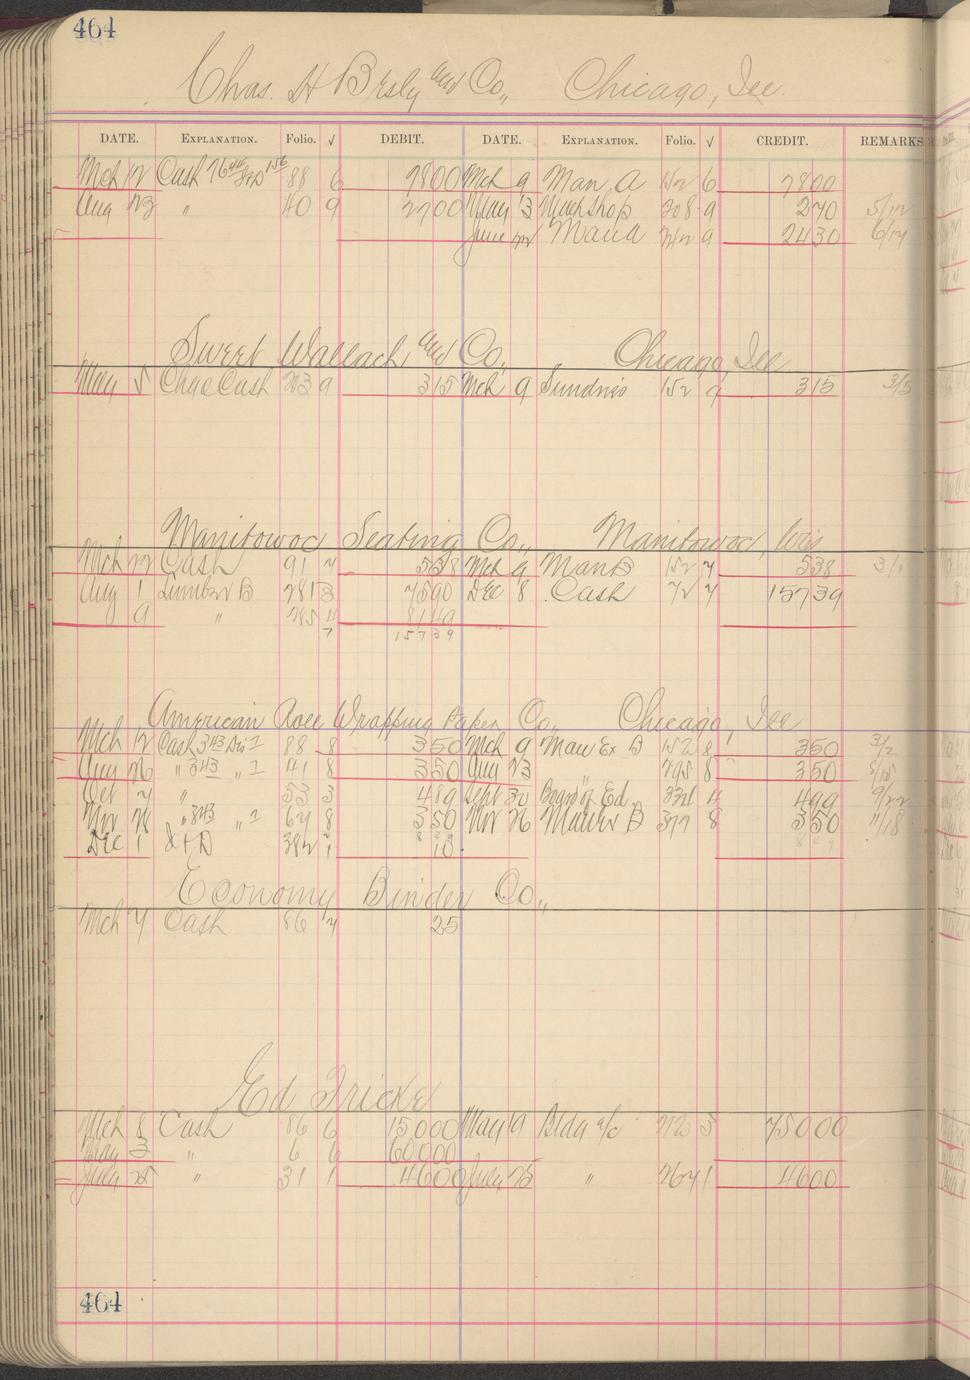 464
Chas. H Besly and Co., Chicago, Ill.
DATE. EXPLANATION. Folio. √ DEBIT. DATE. EXPLANATION. Folio. √ CREDIT. REMARKS
Mch 12 Cash 88 6 7800 Mch 9 Man A 152 6 7800
Aug 23 " 40 9 2700 May 13 Mach Shop 208 9 270 5/12
June 22 Man A 242 9 2430 6/17
Sweet Wallach and Co., Chicago Ill
May 5 Chgo Cash 23 9 315 Mch 9 Sundries 152 9 315 3/5
Manitowoc Seating Co., Manitowoc, Wis
Mch 12 Cash 91 7 538 Mch 9 Man B 152 7 538 3/1
Aug 1 Lumber B 281 3 7590 Dec 8 Cash 72 7 15739
9 " 285 4 8149
7 15739
American Roll Wrapping Paper Co., Chicago, Ill
Mch 12 Cash 343 Dis 7 88 8 350 Mch 9 Man Ex B 152 8 350 3/2
Aug 26 " 343 " 7 41 8 350 Aug 23 " 295 8 350 8/15
Oct 7 " 53 3 489 Sept 30 Board of Ed 331 4 499 9/22
Nov 28 " 343 " 7 67 8 350 Nov 26 Man Ex B 377 8 350 11/18
Dec 1 I & D 382 1 10
Economy Binder Co.,
Mch 7 Cash 86 7 25
Ed Fricke
Mch 8 Cash 86 6 15000 May 19 Bldg a/c 212 3 75000
May 3 " 6 6 60000
July 25 " 31 1 4600 July 25 " 267 1 4600
464